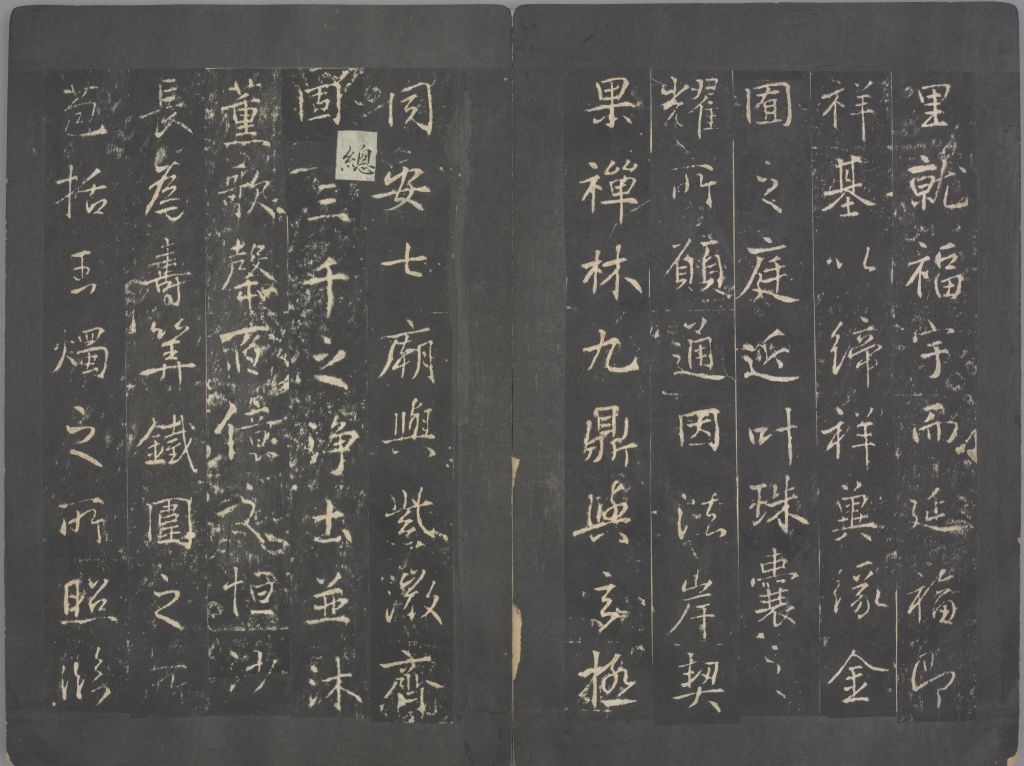 里就福宇而延福即
祥基以締祥冀緣金
園之庭近叶珠囊之
耀所願通因法岸契
果禪林九鼎與玄極
同安七廟與紫微齊
固三千之浄土並沐
總
薰歌聲百億之恒沙
長為壽筭鐵圍之所
苞括玉燭之所照臨